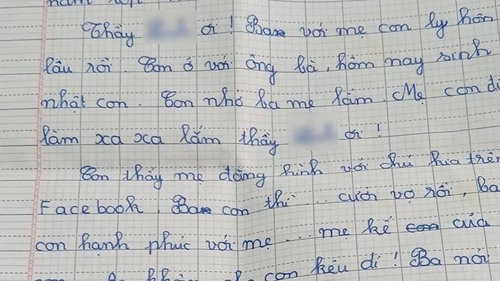 Thầy ơi ! Ba với mẹ con ly hôn
lâu rồi. Con ở với ông bà, hôm nay sinh
nhật con. Con nhớ ba mẹ lắm. Mẹ con đi
làm xa xa lắm thầy ơi !
Con thấy mẹ đăng hình với chú kia trên
Facebook. Ba con thì ... cưới vợ rồi, Ba
con hạnh phúc với mẹ ... mẹ kế của
con kêu dì ! Ba nói